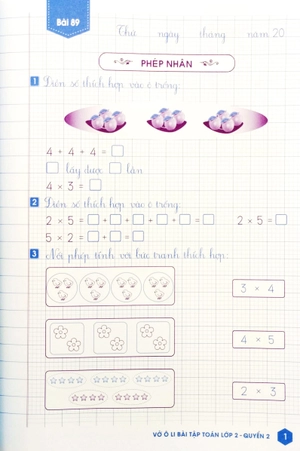 Bài 89
Thứ ngày tháng năm 20
PHÉP NHÂN
1 Điền số thích hợp vào ô trống:
4 + 4 + 4 = □
□ lấy được □ lần
4 × 3 = □
2 Điền số thích hợp vào ô trống:
2 × 5 = □ + □ + □ + □ + □ = □ 2 × 5 = □
5 × 2 = □ + □ = □
3 Nối phép tính với bức tranh thích hợp:
3 × 4
4 × 5
2 × 3
VỞ Ô LI BÀI TẬP TOÁN LỚP 2 - QUYỂN 2 1